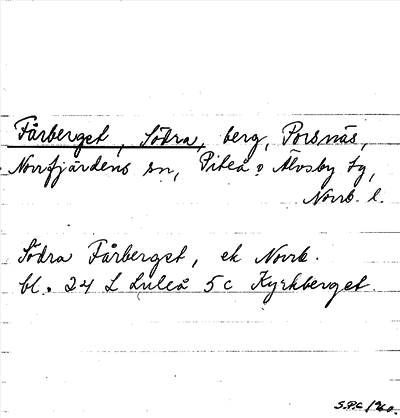 Fårberget, Södra, berg, Porsnäs,
Norrfjärdens sn, Piteå o Älvsby tg,
Norrb. l.
Södra Fårberget, ek Norrb.
bl. 24 L Luleå 5 c Kyrkberget.
S.P.C /60.